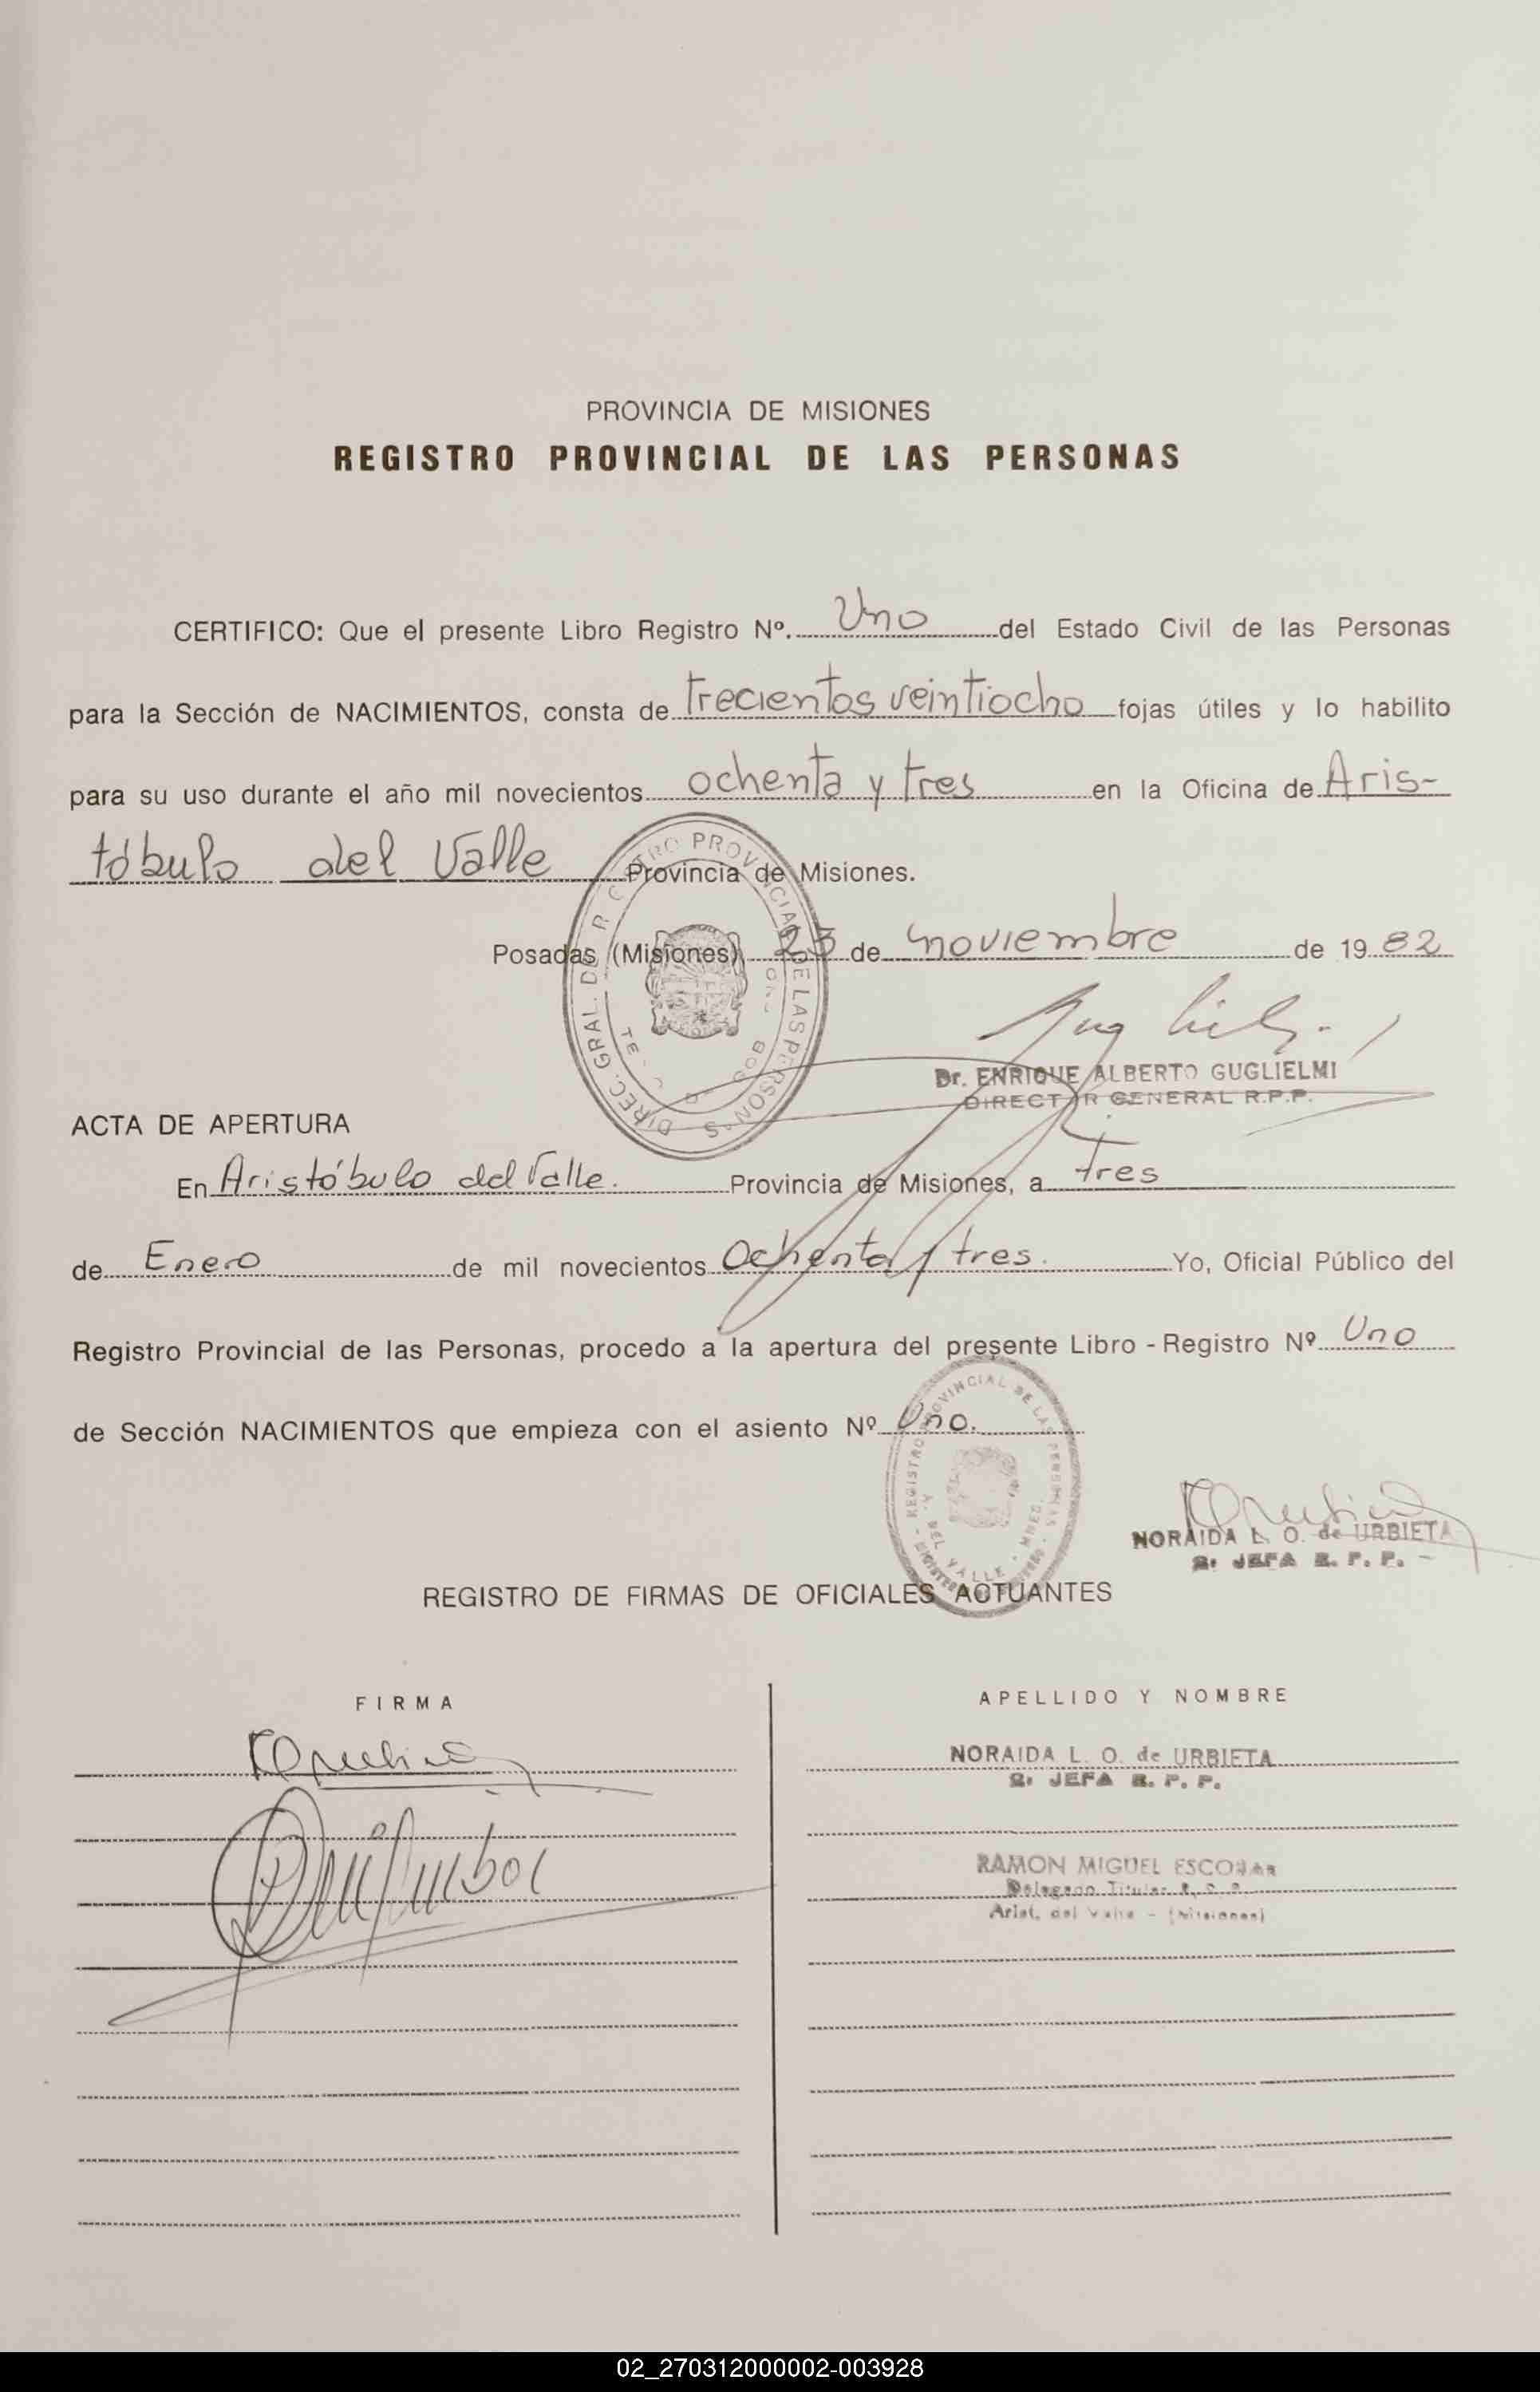 PROVINCIA DE MISIONES
REGISTRO PROVINCIAL DE LAS PERSONAS
CERTIFICO: Que el presente Libro Registro Nº. Uno del Estado Civil de las Personas
para la Sección de NACIMIENTOS, consta de trecientos veintiocho fojas útiles y lo habilito
para su uso durante el año mil novecientos ochenta y tres en la Oficina de Aris-
tóbulo del Valle Provincia de Misiones.
Posadas (Misiones) 23 de noviembre de 1982
Dr. ENRIQUE ALBERTO GUGLIELMI
DIRECTOR GENERAL R.P.P.
ACTA DE APERTURA
En Aristóbulo del Valle. Provincia de Misiones, a tres
de Enero de mil novecientos Ochenta y tres. Yo, Oficial Público del
Registro Provincial de las Personas, procedo a la apertura del presente Libro - Registro Nº Uno
de Sección NACIMIENTOS que empieza con el asiento Nº Uno.
NORAIDA L. O. de URBIETA
2ª JEFA R. P. P.
REGISTRO DE FIRMAS DE OFICIALES ACTUANTES
FIRMA
APELLIDO Y NOMBRE
NORAIDA L. O. de URBIETA
2ª JEFA R. P. P.
RAMON MIGUEL ESCOBAR
Delegado Titular
Arist. del Valle - (Misiones)
02_270312000002-003928